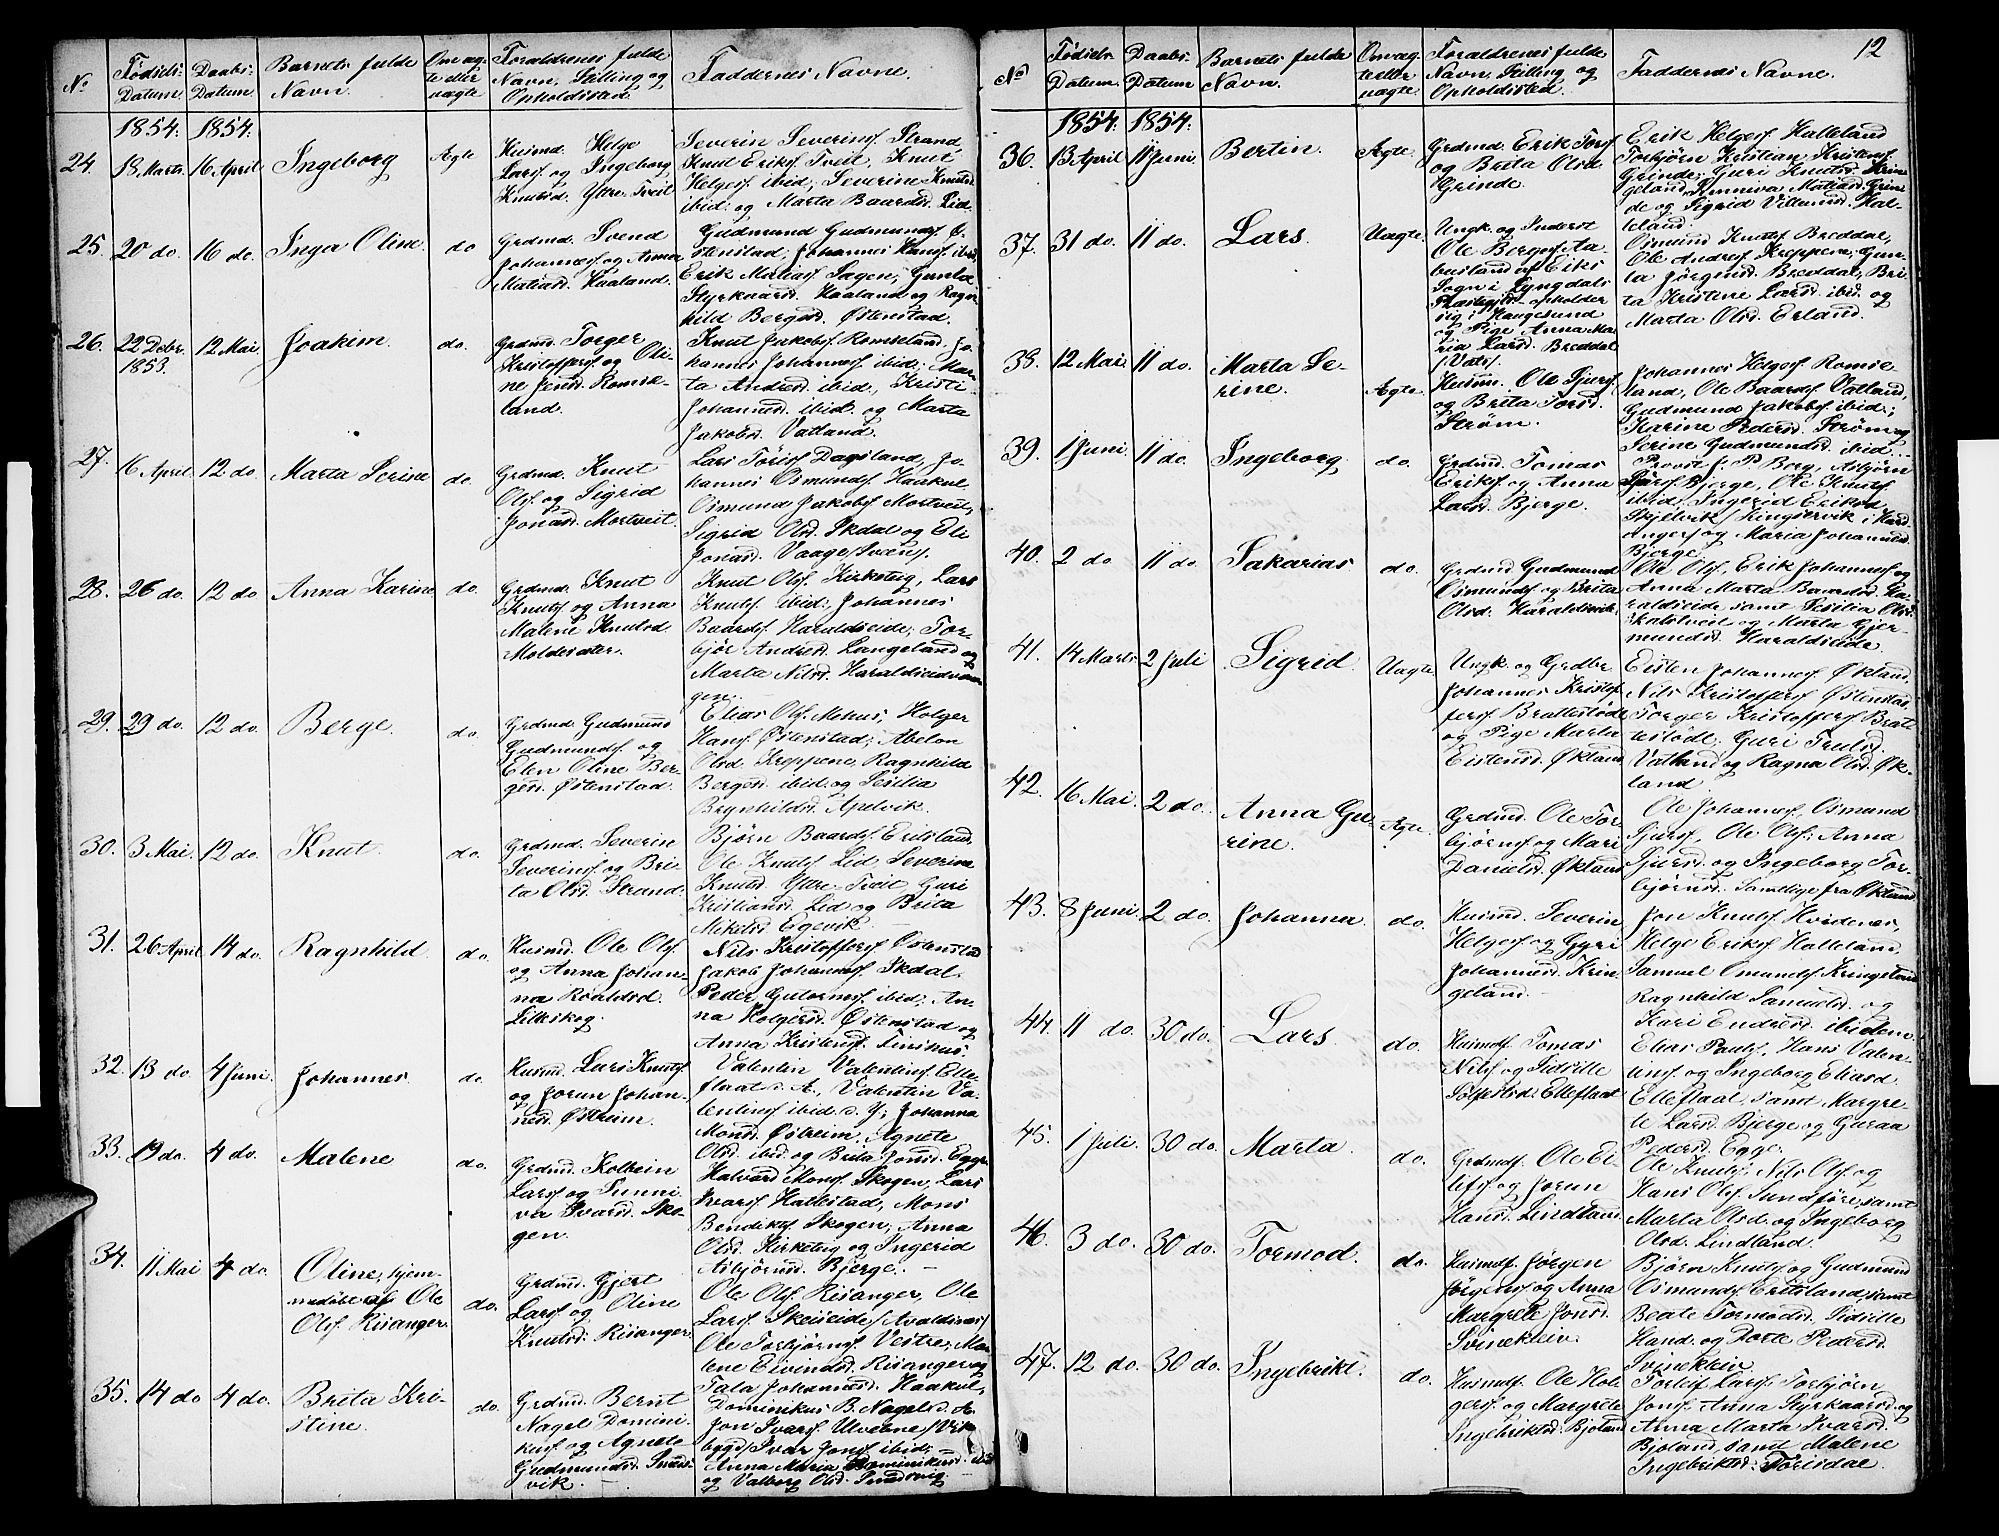 No.
Fødsels-
Datum.
Daabs-
Datum.
Barnets fulde
Navn.
Om æg-
te eller
uægte
Forældrenes fulde
Navn, Stilling og
Opholdssted.
Faddernes Navne.
1854. 1854.
24. 18 Marts 16 April Ingeborg Ægte
Husmd. Helge
Larsf og Ingeborg
Knutsd. Yttre-Tveit
Severin Severinsf Strand,
Knut Eriksf Tveit, Knut
Helgesf ibid; Severine Knutsd
ibid. og Marta Baardsd. Lid.
25. 20 do. 16 do. Inga Oline do
Grdmd. Svend
Johannesf og Anna
Matiasd. Haaland.
Gudmund Gudmundsf Ø-
stenstad, Johannes Hansf ibid,
Erik Matiasf Sagen; Gunla
Styrkaarsd. Haaland og Ragn-
hild Bergesd. Østenstad.
26. 22 Debr. 1853. 12 Mai. Joakim. do.
Grdmd. Torger
Kristoffersf og Oli-
ne Jensd. Romse-
land.
Knut Jakobsf Romseland, Jo-
hannes Johannesf ibid; Mar-
ta Andersd. ibid, Kristi
Johannesd. ibid. og Marta
Jakobsd. Vatland.
27. 16 April 12 do. Marta Serine do.
Grdmd. Knut
Olsf og Sigrid
Jonasd. Mortveit.
Lars Torisf Dagsland, Jo-
hannes Osmundsf Haakul
Osmund Jakobsf Mortveit,
Sigrid Olsd. Skdal og Eli
Jonasd. Vaage/Sveen/.
28. 26 do. 12 do. Anna Karine do.
Grdmd. Knut
Knutsf og Anna
Malene Knutsd
Moldesæter.
Knut Olsf Kirketeig, Lars
Knutsf ibid; Johannes
Baardsf Haraldseide; Tor-
bjør Andersd. Langeland og
Marta Nilsd. Haraldseidvaa-
gen.
29. 29 do. 12 do. Berge. do.
Grdmd. Gudmund
Gudmundsf og
Elen Oline Ber-
gesd. Østenstad.
Elias Olsf Mohus, Holger
Hansf Østenstad; Abelon
Olsd. Kreppene, Ragnhild
Bergesd. ibid og Sesilia
Brynhildsd. Apelvik.
30. 3 Mai. 12 do. Knut. do.
Grdmd. Severin
Severinsf og Bri-
ta Olsd. Strand.
Bjørn Baardsf Erilsland,
Ole Knutsf Lid Severine
Knutsd. Yttre-Tveit, Guri
Kristiansd. Lid og Brita
Mikelsd. Egevik.
31. 26 April 14 do. Ragnhild. do.
Husmd. Ole Olsf
og Anna Johan-
na Roaldsd.
Lilleskog.
Nils Kristoffersf Østenstad
Jakob Johannesf Skdal.
Peder Gutormsf ibid; An-
na Holgersd. Østenstad og
Anna Kristensd.
32. 13 do. 4 Juni. Johannes. do.
Husmd. Lars Knutsf
og Jorun Johan-
nesd. Østreim.
Valentin Valentinsf Elle-
flaat d. Æ, Valentin Va-
lentinsf ibid. d. Y; Johanna
Monsd. Østreim, Agnete
Olsd. ibid. og Brita Jonsd. Egge.
33. 19 do. 4 do. Malene do.
Grdmd. Kolbein
Larsf og Sunni-
va Ivarsd. Sko-
gen.
Halvard Monsf Skogen, Lars
Ivarsf Hallestad, Mons
Bendiktsf Skogen; Anna
Olsd. Kirketeig og Ingerid
Asbjørnsd. Bjerge.
34. 11 Mai 4 do. Oline, hjem-
medøbt af Ole
Olsf Risanger. do.
Grdmd. Gjert
Larsf og Oline
Knutsd. Risanger.
Ole Olsf Risanger, Ole
Larsf Skeiseide/Avaldsnes/
Ole Torbjørnsf Vestre; Ma-
lene Eivindsd. Risanger og
Tala Johannesd. Haakul,
35. 14 do 4 do. Brita Kri-
stine. do.
Grdmd. Bernt
Nagel Domini-
kusf og Agneta
Gudmundsd. Smørs-
vik.
Dominikus B. Nagel d. Æ.
Jon Ivarsf Ulvene/Vik-
bygd/ Ivar Jonsf ibid;
Anna Maria Dominikusd. ibid
og Valborg Olsd. Smørsvig.
12
No
Fødsels-
Datum.
Daabs-
Datum
Barnets fulde
Navn.
Om æg-
te eller
uægte.
Forældrenes fulde
Navn, Stilling og
Opholdssted.
Faddernes Navne.
1854. 1854.
36. 13 April 11 Juni. Bertin. Ægte.
Grdmd. Erik Torsf
og Brita Olsd.
Grinde.
Erik Helgesf Halleland
Torbjørn Kristian Kristensf
Grinde; Guri Knutsd. Krin-
geland, Sunneva Matiasd. Grin-
de og Sigrid Villumsd. Hal-
leland.
37. 31 do. 11 do. Lars. Uægte.
Ungk. og Inderst
Ole Bergesf Aa-
busland af Eiks
Sogn i Lyngdals
Præstegjd. opholder
sig i Haugesund
og Pige Anna Ma-
ria Larsd. Breddal
/Vats/.
Osmund Knutsf Breddal,
Ole Andersf Kreppene, Gun-
la Jørgensd. Breddal, Bri-
ta Kristine Larsd. ibid. og
Marta Olsd. Erland.
38. 12 Mai. 11 do. Marta Se-
rine. Ægte.
Husm. Ole Sjursf
og Brita Torsd.
Strøm.
Johannes Helgesf Romse-
land, Ole Baardsf Vatland,
Gudmund Jakobsf ibid;
Karine Pedersd. Strøm og
Serine Gudmundsd. ibid.
39. 1 Juni. 11 do. Ingeborg. do.
Grdmd. Tomas
Eriksf og Anna
Larsd. Bjerge.
Provst J. P. Berg, Asbjørn
Bjerge, Ole Knutsf
ibid, Ingerid Eriksd.
Skjelvik/Kingservik i Hard-
anger/ og Maria Johannesd.
Bjerge.
40. 2 do 11 do. Sakarias do.
Grdmd Gudmund
Osmundsf og Brita
Olsd. Haraldseide.
Ole Olsf Erik Johannesf og
Anna Marta Baardsd. Ha-
raldseide samt Sesilia Olsd.
Skatelveit og Marta Gjer-
mundsd. Haraldseide.
41. 14 Marts 2 Juli Sigrid. Uægte
Ungk. og Grdbr
Johannes Kristof-
fersf Brattestøde
og Pige Marta
Eistensd. Økland
Eisten Johannesf Økland,
Nils Kristoffersf Østenstad
Torger Kristoffersf Brat-
testøde; Guri Trulsd.
Vatland og Ragna Olsd. Øk-
land.
42. 16 Mai. 2 do. Anna Gu-
rine. Ægte.
Grdmd. Ole Tor-
bjørnsf og Mari
Danielsd. Økland
Ole Johannesf, Osmund
Sjursf, Ole Olsf; Anna
Sjursd. og Ingeborg Tor-
bjørnsd. Samtlige fra Økland
43. 8 Juni. 2 do. Johanna. do.
Husmd. Severin
Helgesf og Gyri
Johannesd. Krin-
geland.
Jon Knutsf Hvidenes,
Helge Eriksf Halleland,
Samuel Omundsf Kringeland
Ragnhild Samuelsd. og
Kari Endresd. ibidem.
44. 11 do. 30 do. Lars. do.
Husmdf. Tomas
Nilsf og Sidsille
Elleflaat
Elias Paulsf, Hans Valen-
tinsf og Ingeborg Eliasd.
Elleflaat samt Margre-
te Larsd. Bjerge og Guraa
Pedersd. Egge.
45. 1 Juli. 30 do. Marta. do.
Grdmdf. Ole Ei-
lifsf og Jorun
Hansd. Lindland.
Ole Knutsf, Nils Olsf og
Hans Olsf Sundføre, samt
Marta Olsd. og Ingeborg
Olsd. Lindland.
46. 3 do. 30 do. Tormod. do.
Husmdf. Jørgen
Jørgensf og Anna
Margrete Jonsd.
Svinekleiv.
Bjørn Knutsf og Gudmund
Osmundsf Erilsland, samt
Beate Tormodsd. Sidsille
Hansd. og Dorte Pedersd.
Svinekleiv.
47. 12 do. 30 do. Ingebrikt. do.
Husmdf. Ole Hol-
gersf og Margrete
Ingebriktsd. Bjoland
Torleif Larsf, Torbjørn
Jonsf. Anna Styrkaarsd. og
Anna Marta Ivarsd.
Bjoland, samt Malene
Ingebriktsd. Torisdal.